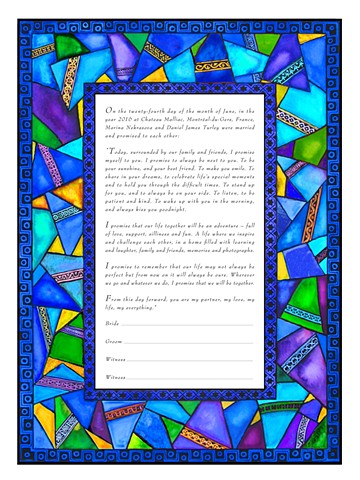 On the twenty-fourth day of the month of June, in the
year 2010 at Chateau Malliac, Montréal-du-Gers, France,
Marina Nekrasova and Daniel James Turley were married
and promised to each other:
"Today, surrounded by our family and friends, I promise
myself to you. I promise to always be next to you. To be
your sunshine, and your best friend. To make you smile. To
share in your dreams, to celebrate life's special moments
and to hold you through the difficult times. To stand up
for you, and to always be on your side. To listen, to be
patient and kind. To wake up with you in the morning,
and always kiss you goodnight.
I promise that our life together will be an adventure – full
of love, support, silliness and fun. A life where we inspire
and challenge each other, in a home filled with learning
and laughter, family and friends, memories and photographs.
I promise to remember that our life may not always be
perfect but from now on it will always be ours. Wherever
we go and whatever we do, I promise that we will be together.
From this day forward, you are my partner, my love, my
life, my everything."
Bride
Groom
Witness
Witness